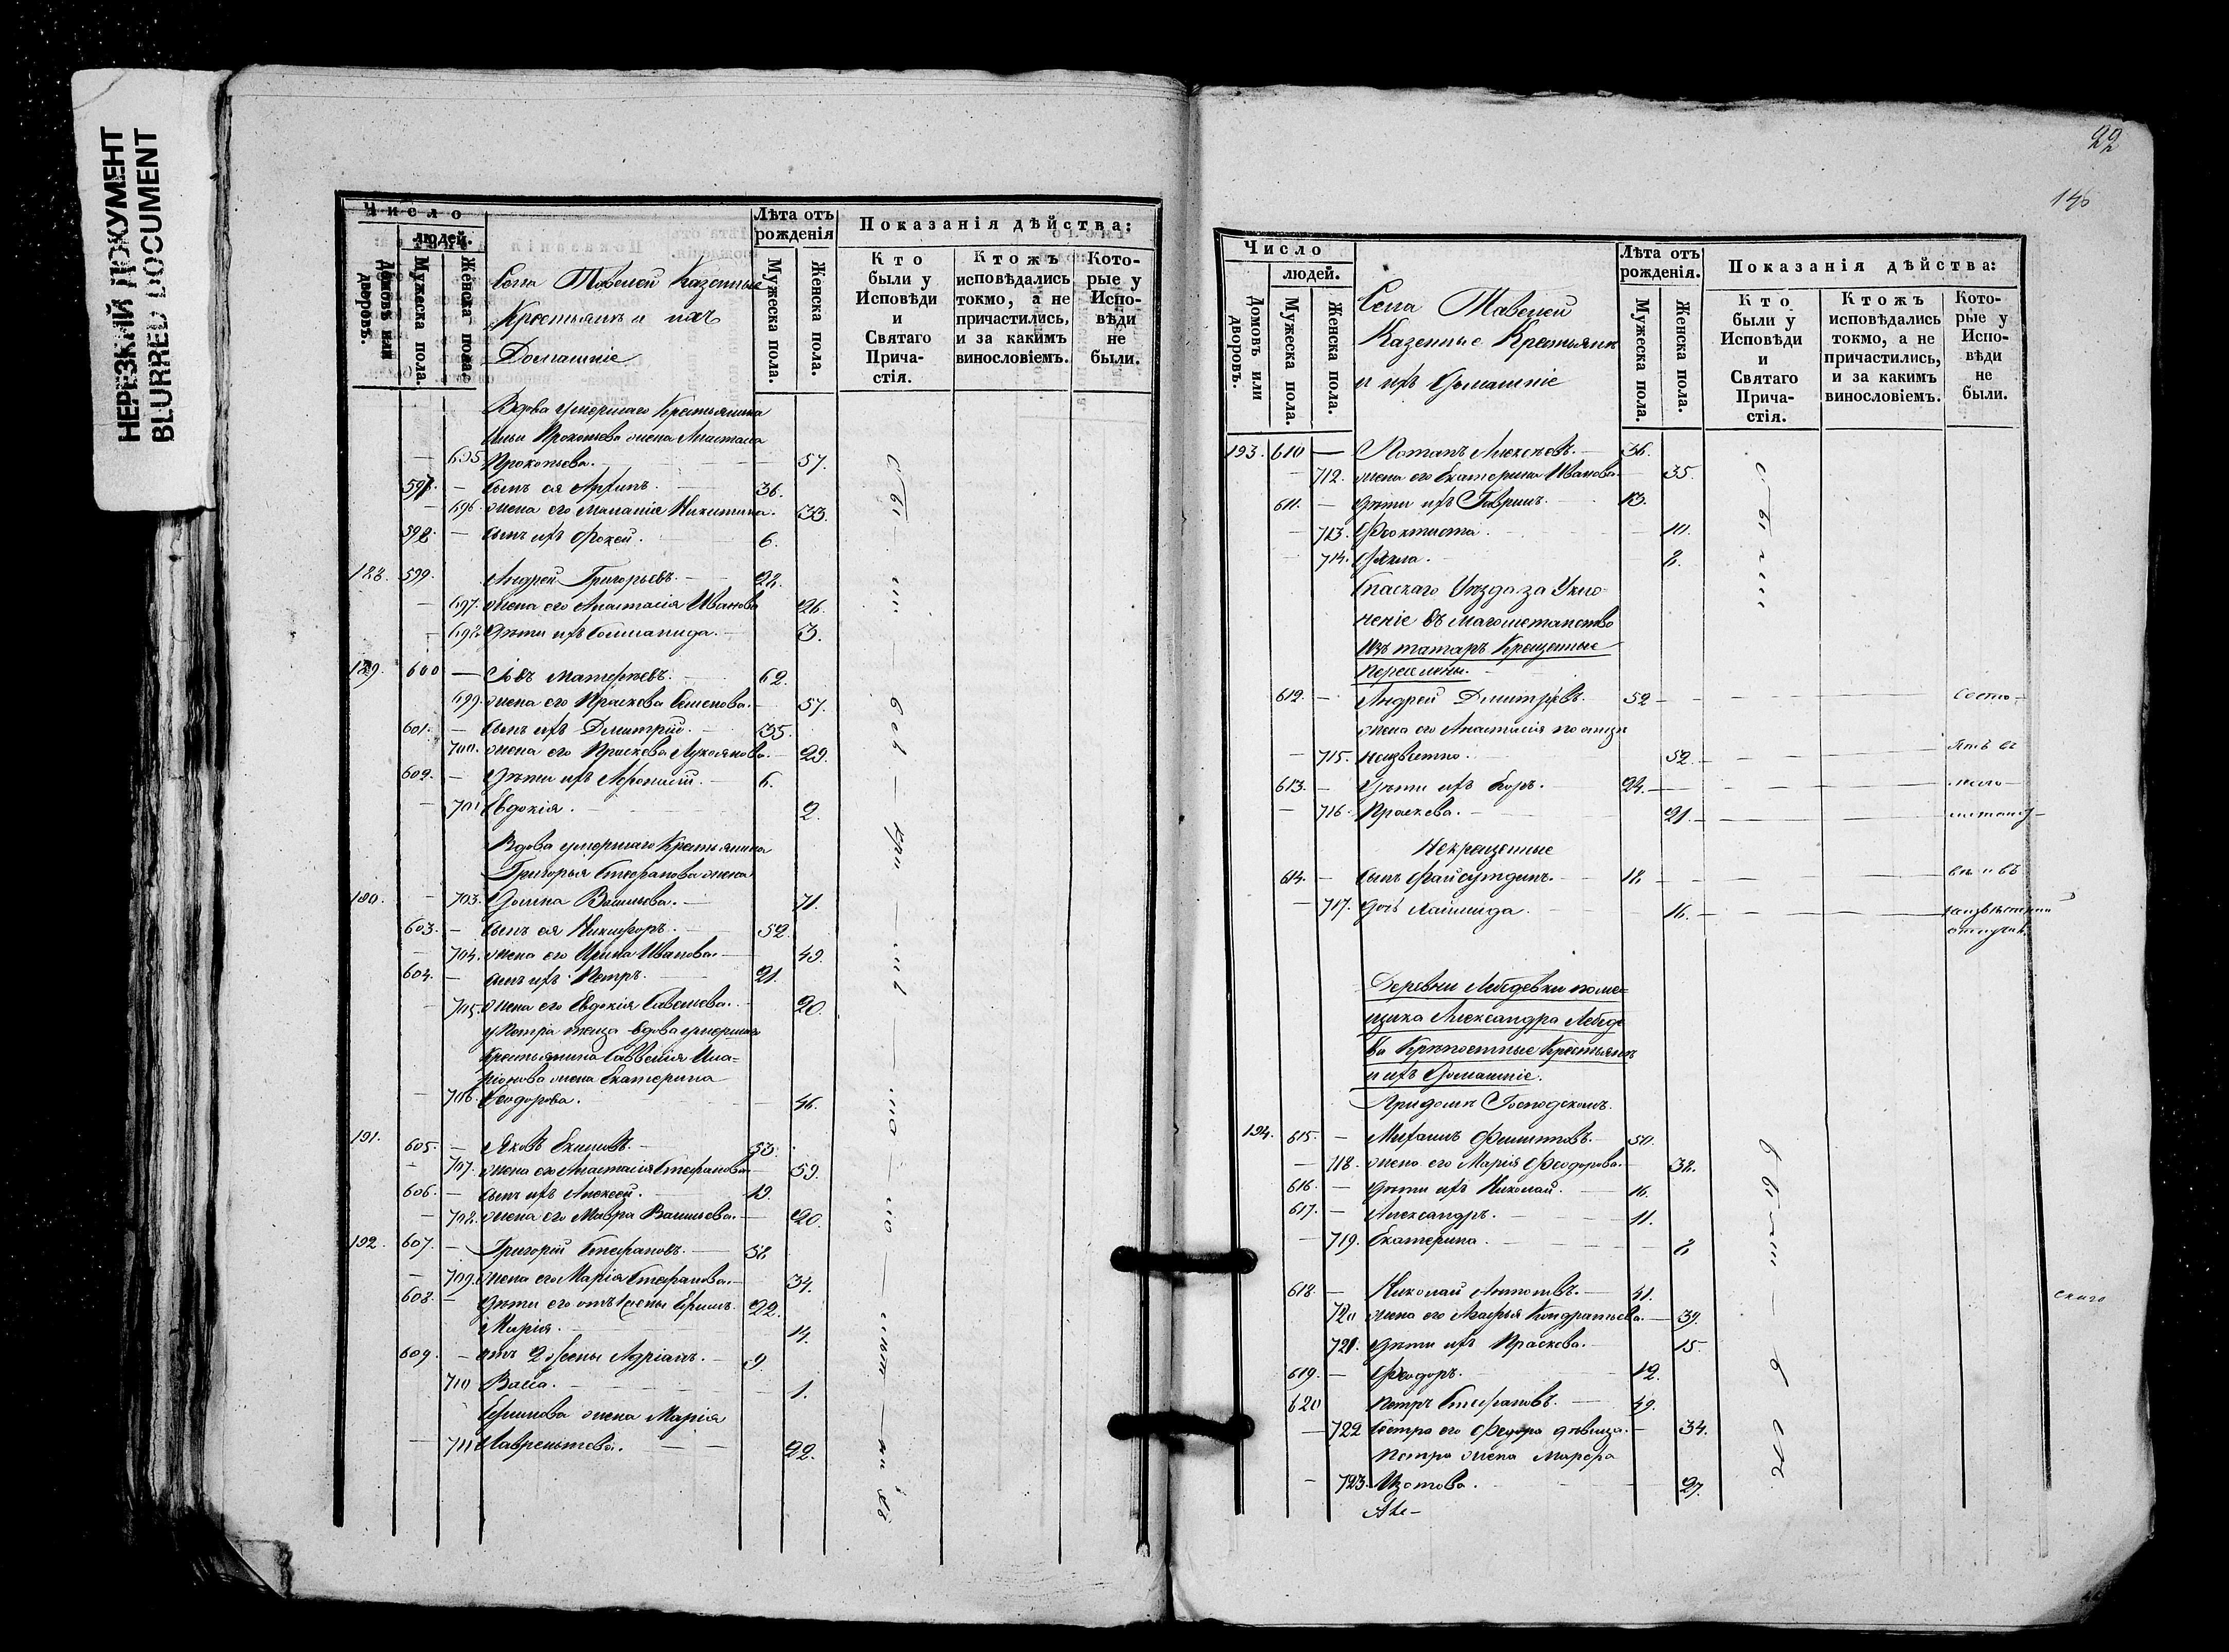 НЕРЕЗКИЙ ДОКУМЕНТ
BLURRED DOCUMENT
Число
людей.
Домовъ или дворовъ.
Мужеска пола.
Женска пола.
Села Тавелей Казенные
Крестьяне и ихъ
Домашніе
Лѣта отъ рожденія
Мужеска пола.
Женска пола.
Показанія дѣйства:
Кто были у Исповѣди и Святаго Причастія.
Ктожъ исповѣдались токмо, а не причастились, и за какимъ винословіемъ.
Которые у Исповѣди не были.
Вдова умершаго Крестьянина
Ильи Прокопьева жена Анастасія
695 Прокопьева. 57.
597. сынъ ея Архипъ. 36.
696. жена его Маланія Никитина. 33.
598. сынъ ихъ Фокей. 6.
188. 599. Андрей Григорьевъ. 28.
697. жена его Анастасія Иванова 26.
698. дѣти ихъ Соломанида. 3.
189. 600 — Іовъ Матфеевъ. 62.
699. жена его Праскева Семенова. 57.
601. сынъ ихъ Димитрій. 35.
700. жена его Праскева Лукоянова. 29.
602. дѣти ихъ Афонасій. 6.
701 Евдокія. 2.
Вдова умершаго Крестьянина
Григорья Стефанова жена
190. 703. Домна Васильева. 71.
603. сынъ ея Никифоръ. 52.
704. жена его Ирина Иванова. 49.
604. сынъ ихъ Петръ. 21.
705. жена его Евдокія Савельева. 20.
у Петра теща вдова умершаго
Крестьянина Савелія Ила-
ріонова жена Екатерина
706. Феодорова. 46.
191. 605. Яковъ Екимовъ. 53.
707. жена его Анастасія Стефанова 59.
606. сынъ ихъ Алексей. 19.
708. жена его Мавра Васильева. 20.
192. 607. Григорій Стефановъ. 38
709. жена его Марія Стефанова. 34.
608. дѣти его отъ 1 жены Ефимъ. 22.
Марія. 14.
609. отъ 2 жены Адріанъ. 9.
710 Васса. 1.
Ефимова жена Марія
711 Лаврентьева. 22.
22
146
Число
людей.
Домовъ или дворовъ.
Мужеска пола.
Женска пола.
Села Тавелей
Казенные Крестьяне
и ихъ домашніе
Лѣта отъ рожденія.
Мужеска пола.
Женска пола.
Показанія дѣйства:
Кто были у Исповѣди и Святаго Причастія.
Ктожъ исповѣдались токмо, а не причастились, и за какимъ винословіемъ.
Которые у Исповѣди не были.
193. 610 — Потапъ Алексѣевъ. 36.
712. жена его Екатерина Иванова 35.
611. дѣти ихъ Гаврилъ. 13.
713. Феоктиста. 10.
714. Фекла. 8.
Спаскаго Уѣзда за Укло-
неніе въ Магометанство
Изъ татаръ Крещенные
Переселены.
612. Андрей Димитріевъ. 52
жена его Анастасія по отцѣ
715. неизвѣстно. 52.
613. дѣти ихъ Егоръ. 24.
716. Праскева. 21.
Некрещенные
614. сынъ Файсутдинъ. 18.
717. дочь 16.
Деревни Лебедевки поме-
щика Александра Лебеде
ва Крѣпостные Крестьяне
и ихъ домашніе.
При домѣ Господскомъ.
194. 615. Михаилъ Филипповъ. 50.
718. жена его Марія Феодорова. 38.
616. дѣти ихъ Николай. 16.
617. Александръ. 11.
719. Екатерина. 8
618. Николай Антоновъ. 41.
720 жена его Агафья Кондратьева. 39.
721. дѣти ихъ Праскева. 15.
619. Феодоръ. 12.
620 Петръ Стефановъ. 49.
722 Сестра его дѣвица. 34.
Петра жена Марфа
723. Изотова. 27.